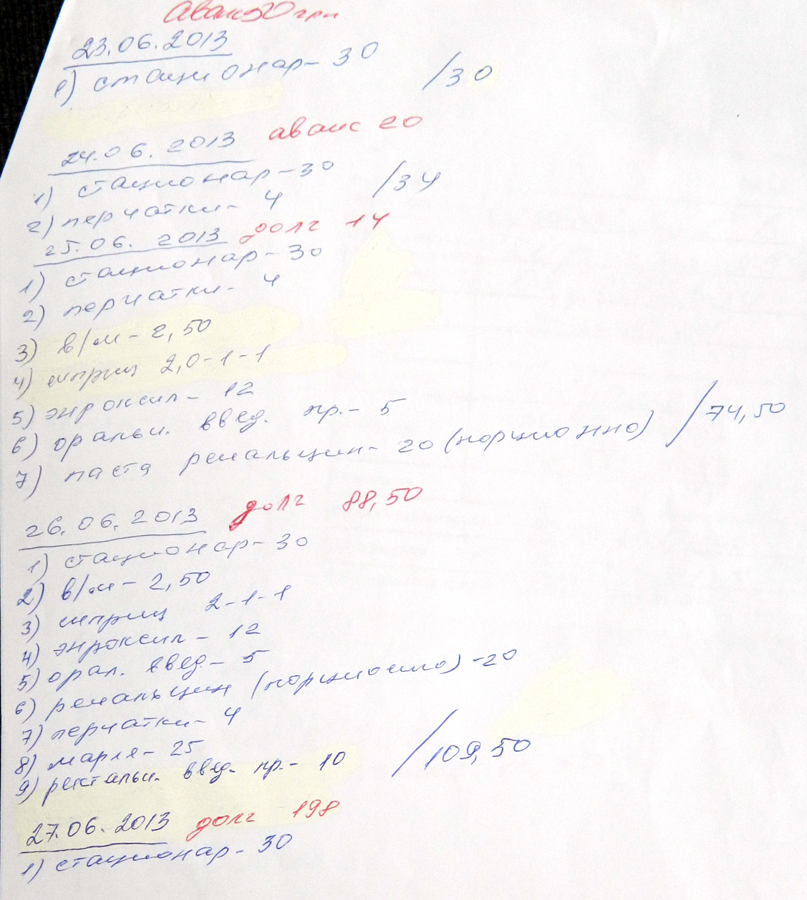 Аванс 50 грн
23.06.2013
1) стационар - 30 /30
24.06.2013 аванс 20
1) стационар - 30
2) перчатки - 4 /34
25.06.2013 долг 14
1) стационар - 30
2) перчатки - 4
3) в/м - 2,50
4) шприц 2,0 - 1 - 1
5) энроксил - 12
6) оральн. введ. пр. - 5
7) паста ренальцин - 20 (порционно) /74,50
26.06.2013 долг 88,50
1) стационар - 30
2) в/м - 2,50
3) шприц 2 - 1 - 1
4) энроксил - 12
5) орал. введ. - 5
6) ренальцин (порционно) - 20
7) перчатки - 4
8) марля - 25
9) ректальн. введ. пр. - 10 /109,50
27.06.2013 долг 198
1) стационар - 30